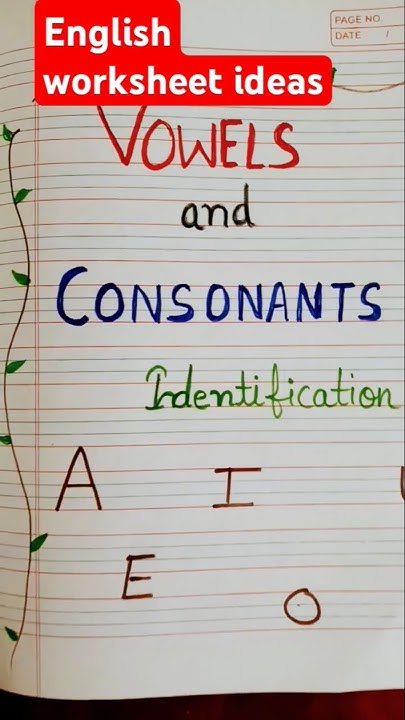 English
worksheet ideas
PAGE NO.
DATE /
VOWELS
and
CONSONANTS
Identification
A I
E O